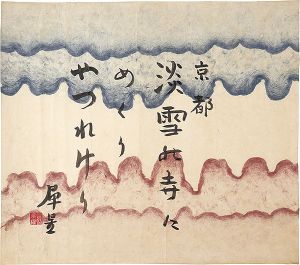 京都
淡雪の寺に
めぐり
やつれけり
犀星